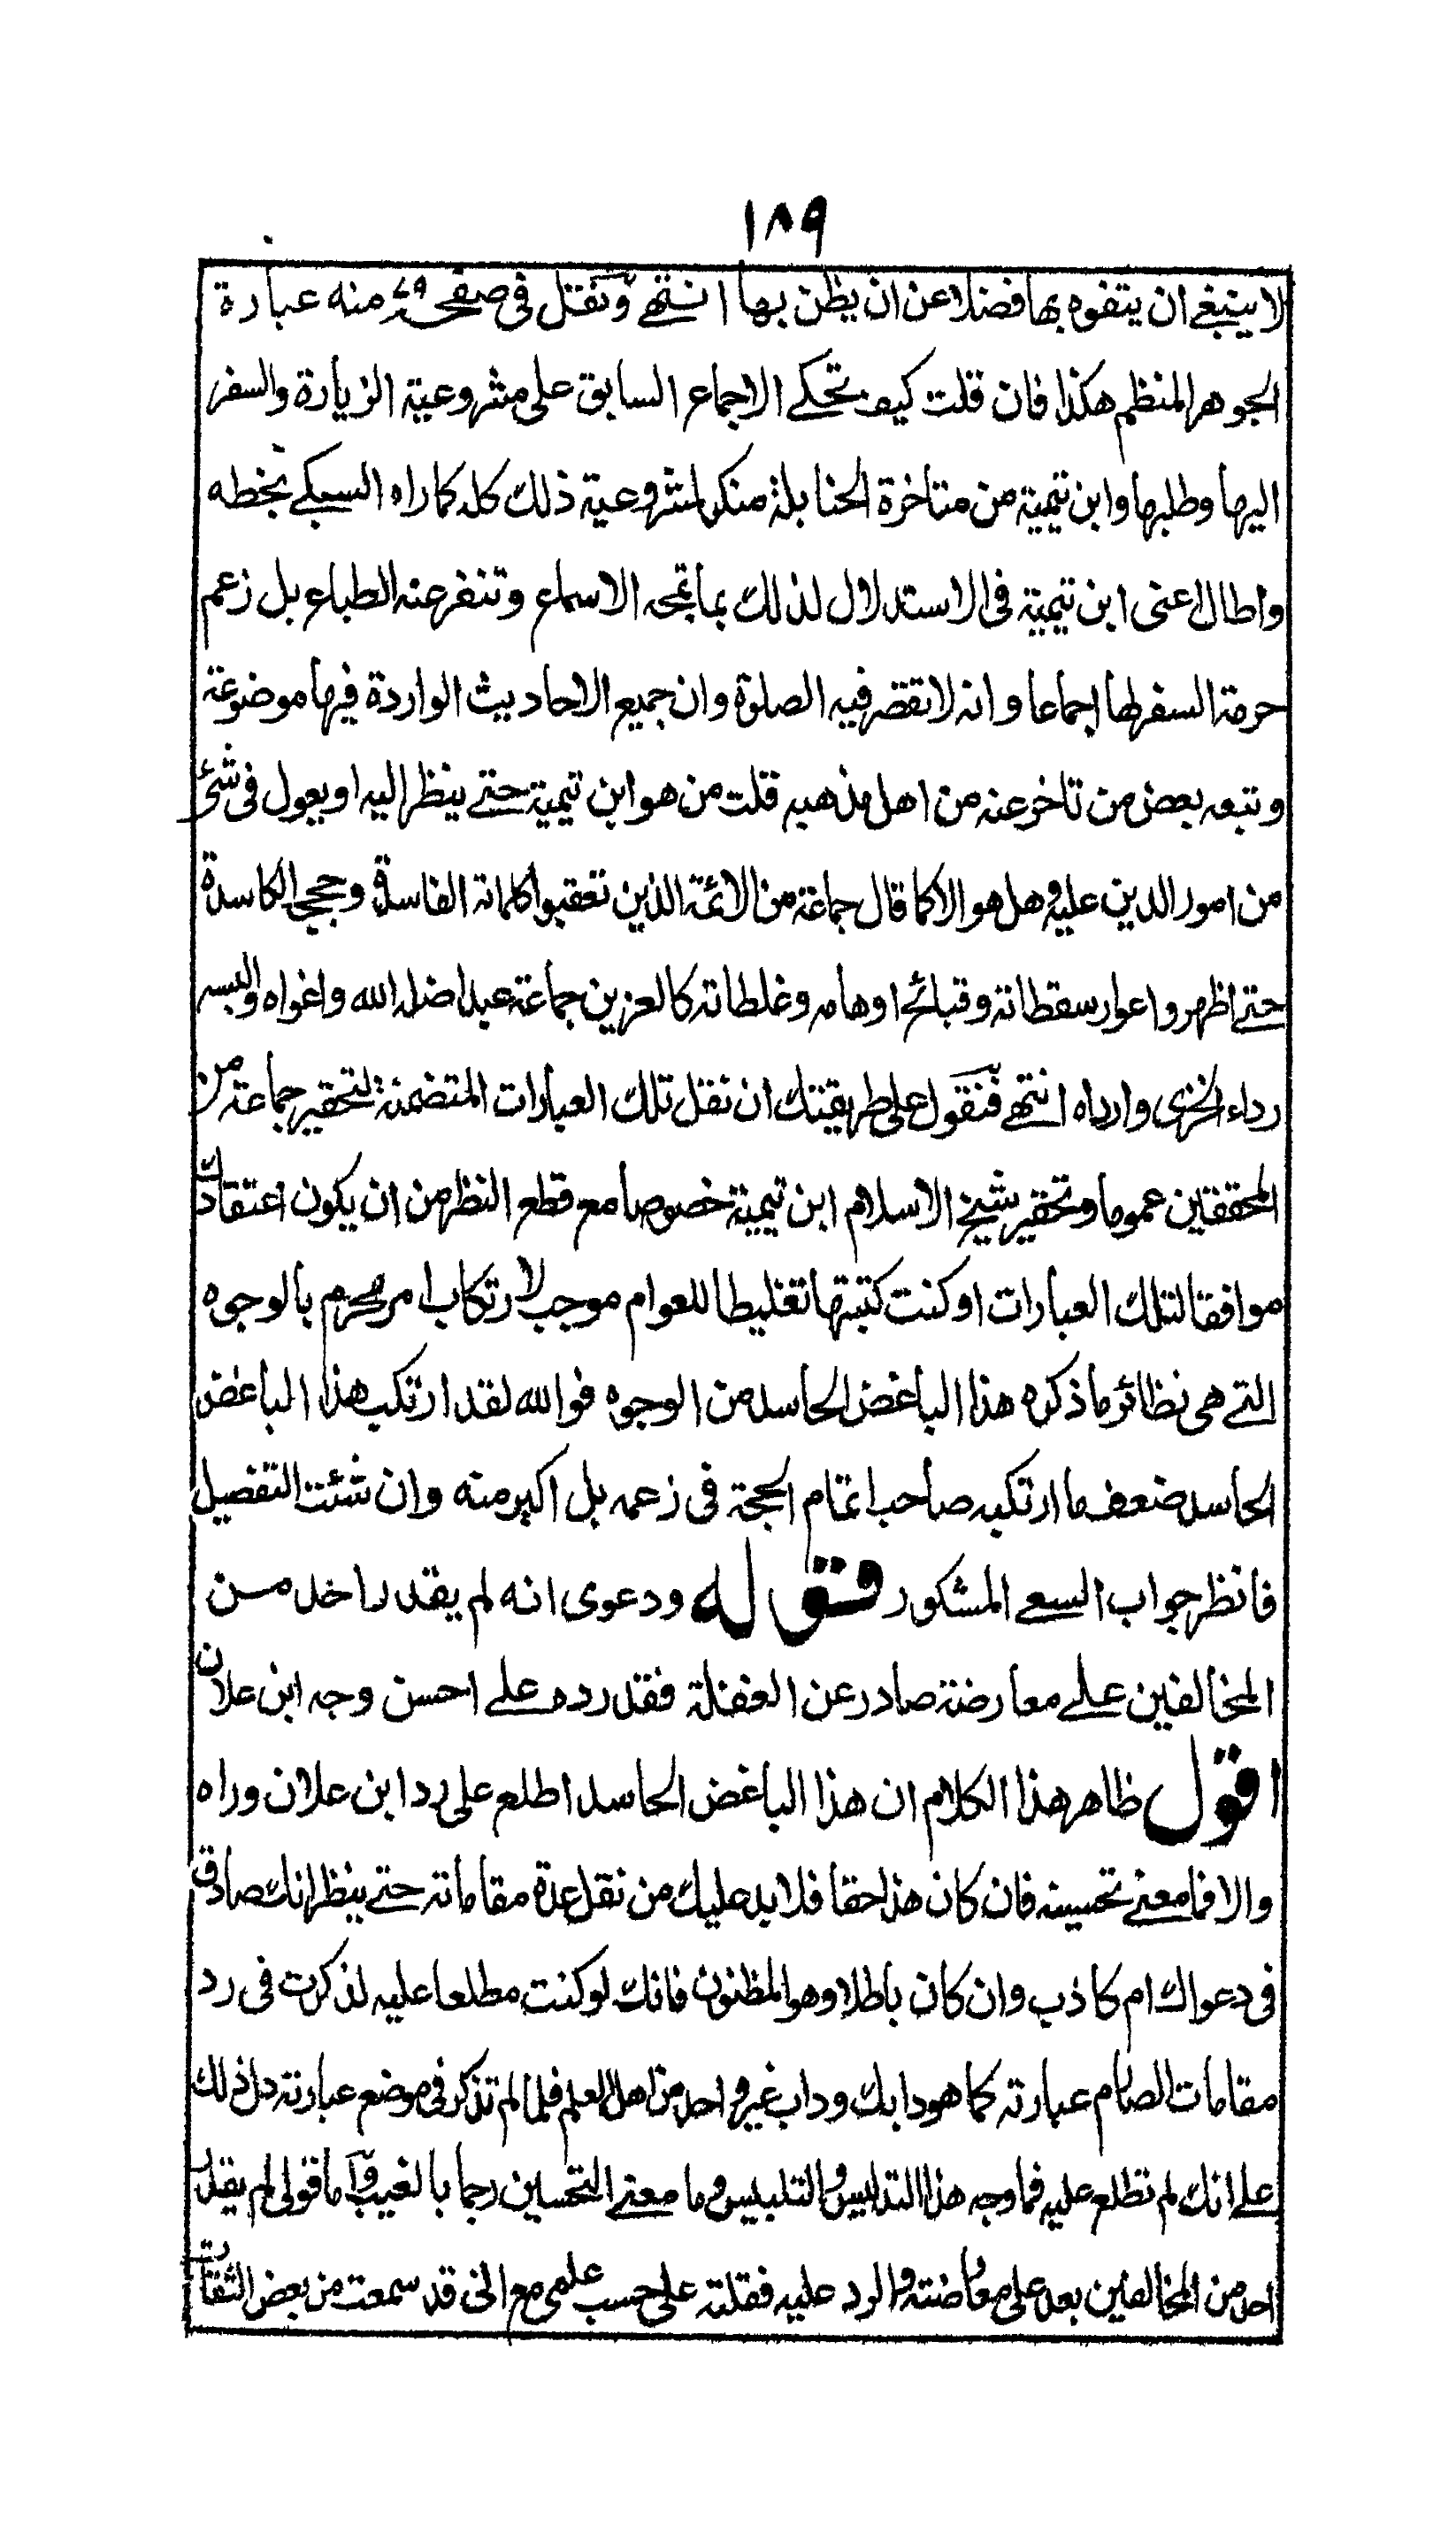 ١٨٩
لا ينبغي ان يتفوه بها فضلا عن ان يظن بها انتهى ونقل في صفحة ٧٩ منه عبارة
الجوهر المنظم هكذا فان قلت كيف تحكي الاجماع السابق على مشروعية الزيارة والسفر
اليها وطلبها وابن تيمية من متاخرة الحنابلة منكر لمشروعية ذلك كله كما راه السبكي بخطه
واطال اعنى ابن تيمية فى الاستدلال لذلك بما تمجه الاسماع وتنفر عنه الطباع بل زعم
حرمة السفر لها اجماعا وانه لا تقصر فيه الصلوة وان جميع الاحاديث الواردة فيها موضوعة
وتبعه بعض من تاخر عنه من اهل مذهبه قلت من هو ابن تيمية حتى ينظر اليه او يعول فى شئ
من امور الدين عليه وهل هو الا كما قال جماعة من الائمة الذين تعقبوا كلماته الفاسدة وحججه الكاسدة
حتى اظهروا عوار سقطاته وقبائح اوهامه وغلطاته كالعز بن جماعة عبد اضله الله واغواه والبسه
رداء الخزى وارداه انتهى فنقول على طريقتك ان نقل تلك العبارات المتضمنة لتحقير جماعة من
المحققين عموما وتحقير شيخ الاسلام ابن تيمية خصوصا مع قطع النظر من ان يكون اعتقادك
موافقا لتلك العبارات او كنت كتبتها تغليطا للعوام موجب لارتكاب امر محرم بالوجوه
التي هى نظائر ما ذكره هذا الباغض الحاسد من الوجوه فوالله لقد ارتكب هذا الباغض
الحاسد ضعف ما ارتكبه صاحب اتمام الحجة فى زعمه بل اكبر منه وان شئت التفصيل
فانظر جواب السعى المشكور قوله ودعوى انه لم يقدر احد من
المخالفين على معارضة صادر عن الغفلة فقد رده على احسن وجه ابن علان
اقول ظاهر هذا الكلام ان هذا الباغض الحاسد اطلع على رد ابن علان وراه
والا فما معنى تحسينه فان كان هذا حقا فلا بد عليك من نقل عدة مقاماته حتى ينظر انك صادق
فى دعواك ام كاذب وان كان باطلا وهو المظنون فانك لو كنت مطلعا عليه لذكرت فى رد
مقامات الصارم عبارته كما هو دابك وداب غير واحد من اهل العلم فلما لم تذكر فى موضع عبارته دل ذلك
على انك لم تطلع عليه فما وجه هذا التدليس والتلبيس وما معنى التحسين رجما بالغيب واما قولى لم يقدر
احد من المخالفين بعد على معارضته والرد عليه فقلته على حسب علمى مع انى قد سمعت من بعض الثقات